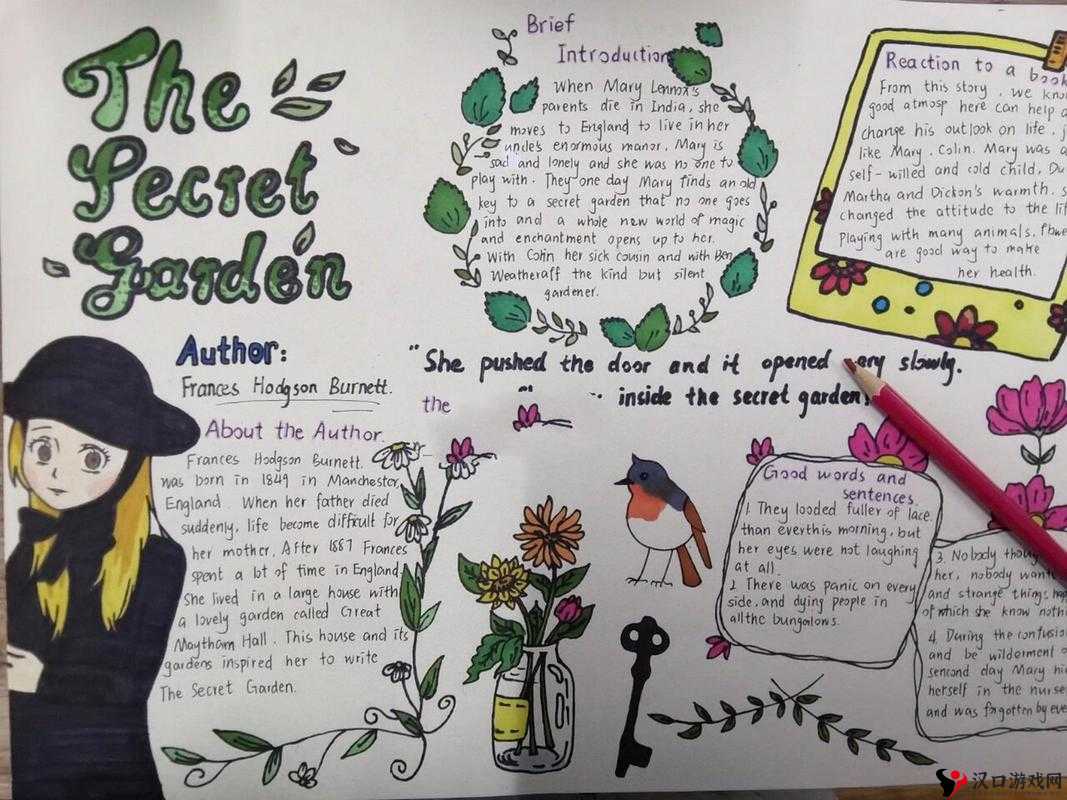 The
Secret
Garden
Author:
Frances Hodgson Burnett.
About the Author
Frances Hodgson Burnett.
was born in 1849 in Manchester
England. When her father died
suddenly, life become difficult for
her mother. After 1887 Frances
spent a lot of time in England
She lived in a large house with
a lovely garden called Great
Maytham Hall. This house and its
gardens inspired her to write
The Secret Garden.
Brief
Introduction
When Mary Lennox's
parents die in India, she
moves to England to live in her
uncle's enormous manor. Mary is
sad and lonely and she was no one to
play with. They one day Mary finds an old
key to a secret garden that no one goes
into and a whole new world of magic
and enchantment opens up to her.
With Colin her sick cousin and with Ben
Weatheraff the kind but silent
gardener.
Reaction to a book
From this story, we
good atmosp here can help
change his outlook on life,
like Mary. Colin. Mary was a
self-willed and cold child,
Martha and Dickon's warmth.
changed the attitude to the
Playing with many animals.
are good way to make
her health.
"She pushed the door and it opened slowly.
the inside the secret garden
Good words and
sentences
1. They looded fuller of lace
than everthis morning, but
her eyes were not laughing
at all.
2 There was panic on every
side. and dying people in
allthc bungalows.
3. Nobody
her, nobody
and strange things
of which she know
4. During the
and be wilderment
sencond day Mary
herself in the
and was forgotten by
汉口游戏网